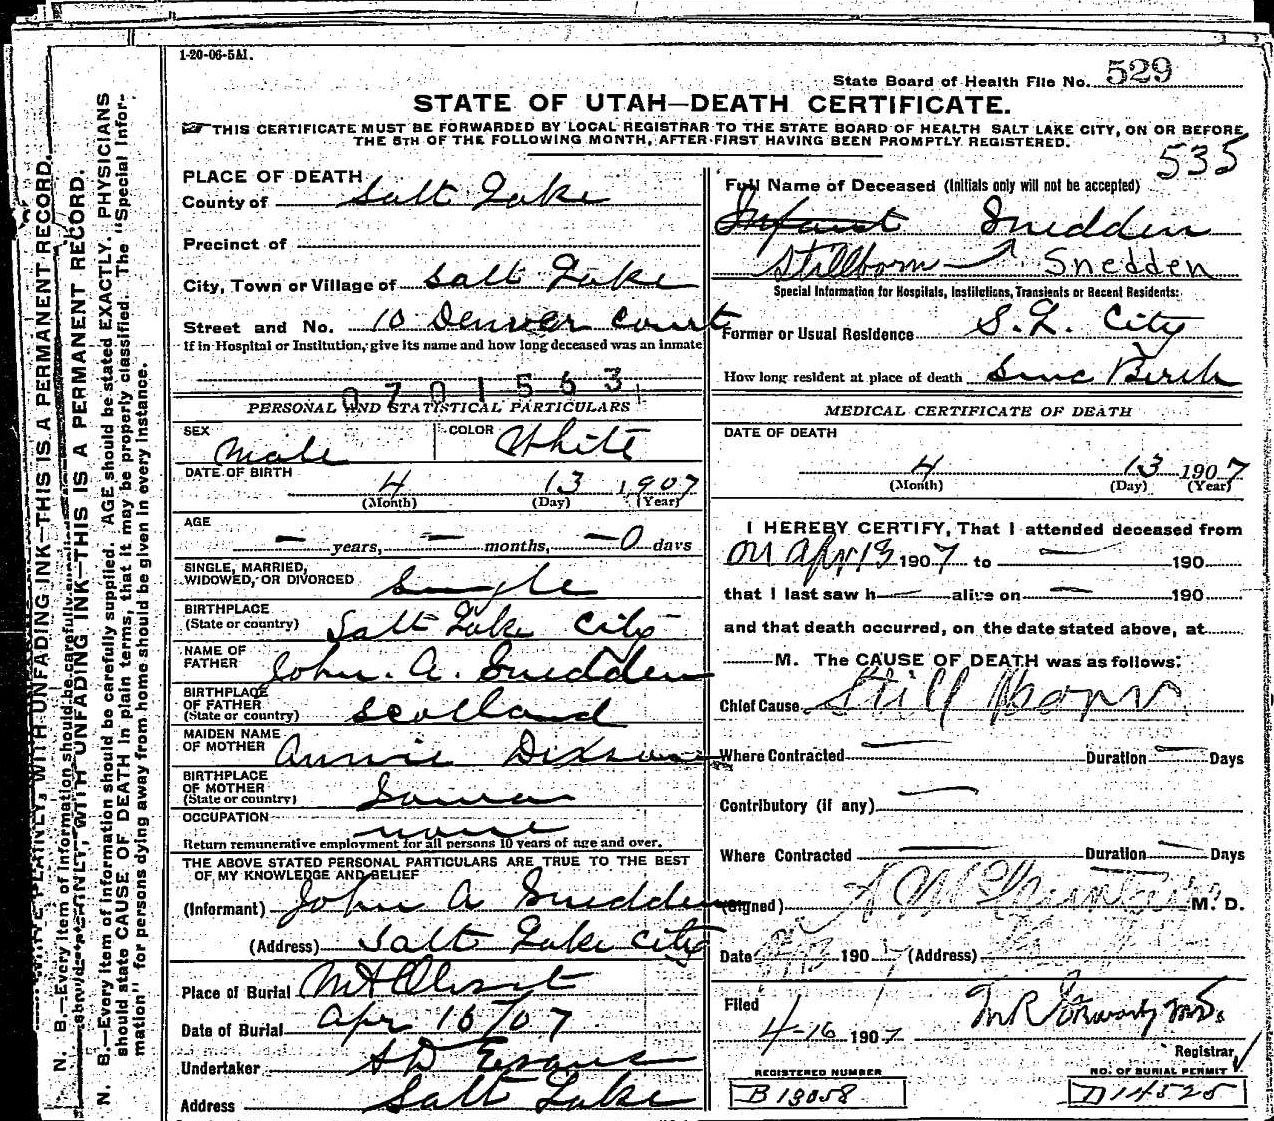 1-20-06-5M.
State Board of Health File No. 529
STATE OF UTAH—DEATH CERTIFICATE.
THIS CERTIFICATE MUST BE FORWARDED BY LOCAL REGISTRAR TO THE STATE BOARD OF HEALTH SALT LAKE CITY, ON OR BEFORE
THE 5TH OF THE FOLLOWING MONTH, AFTER FIRST HAVING BEEN PROMPTLY REGISTERED.
535
PLACE OF DEATH
County of Salt Lake
Precinct of
City, Town or Village of Salt Lake
Street and No. 10 Denver Court
If in Hospital or Institution, give its name and how long deceased was an inmate
0701563
PERSONAL AND STATISTICAL PARTICULARS
SEX Male COLOR White
DATE OF BIRTH
4 13 1907
(Month) (Day) (Year)
AGE
— years, — months, — 0 days
SINGLE, MARRIED,
WIDOWED, OR DIVORCED Single
BIRTHPLACE
(State or country) Salt Lake City
NAME OF
FATHER John. A. Snedden
BIRTHPLACE
OF FATHER
(State or country) Scotland
MAIDEN NAME
OF MOTHER Annie Dixson
BIRTHPLACE
OF MOTHER
(State or country) Iowa
OCCUPATION
none
Return remunerative employment for all persons 10 years of age and over.
THE ABOVE STATED PERSONAL PARTICULARS ARE TRUE TO THE BEST
OF MY KNOWLEDGE AND BELIEF
(Informant) John A Snedden
(Address) Salt Lake City
Place of Burial Mt Olivet
Date of Burial Apr 16/07
Undertaker S D Evans
Address Salt Lake
Full Name of Deceased (Initials only will not be accepted)
Infant Snedden
Stillborn Snedden
Special Information for Hospitals, Institutions, Transients or Recent Residents:
Former or Usual Residence S. L. City
How long resident at place of death Sinc Birth
MEDICAL CERTIFICATE OF DEATH
DATE OF DEATH
4 13 1907
(Month) (Day) (Year)
I HEREBY CERTIFY, That I attended deceased from
on Apr 13 1907 to — 190
that I last saw h— alive on — 190
and that death occurred, on the date stated above, at
M. The CAUSE OF DEATH was as follows:
Chief Cause Still Born
Where Contracted — Duration — Days
Contributory (if any) —
Where Contracted — Duration — Days
(Signed) M. D.
Date 1907 (Address)
Filed
4-16 1907
Registrar
REGISTERED NUMBER
B 13058
NO. OF BURIAL PERMIT
D 14525
N. B.—Every item of information should be carefully supplied. AGE should be stated EXACTLY. PHYSICIANS
should state CAUSE OF DEATH in plain terms, that it may be properly classified. The "Special Infor-
mation" for persons dying away from home should be given in every instance.
WITH UNFADING INK—THIS IS A PERMANENT RECORD.
WITH UNFADING INK—THIS IS A PERMANENT RECORD.
N. B.—Every item of information should be carefully